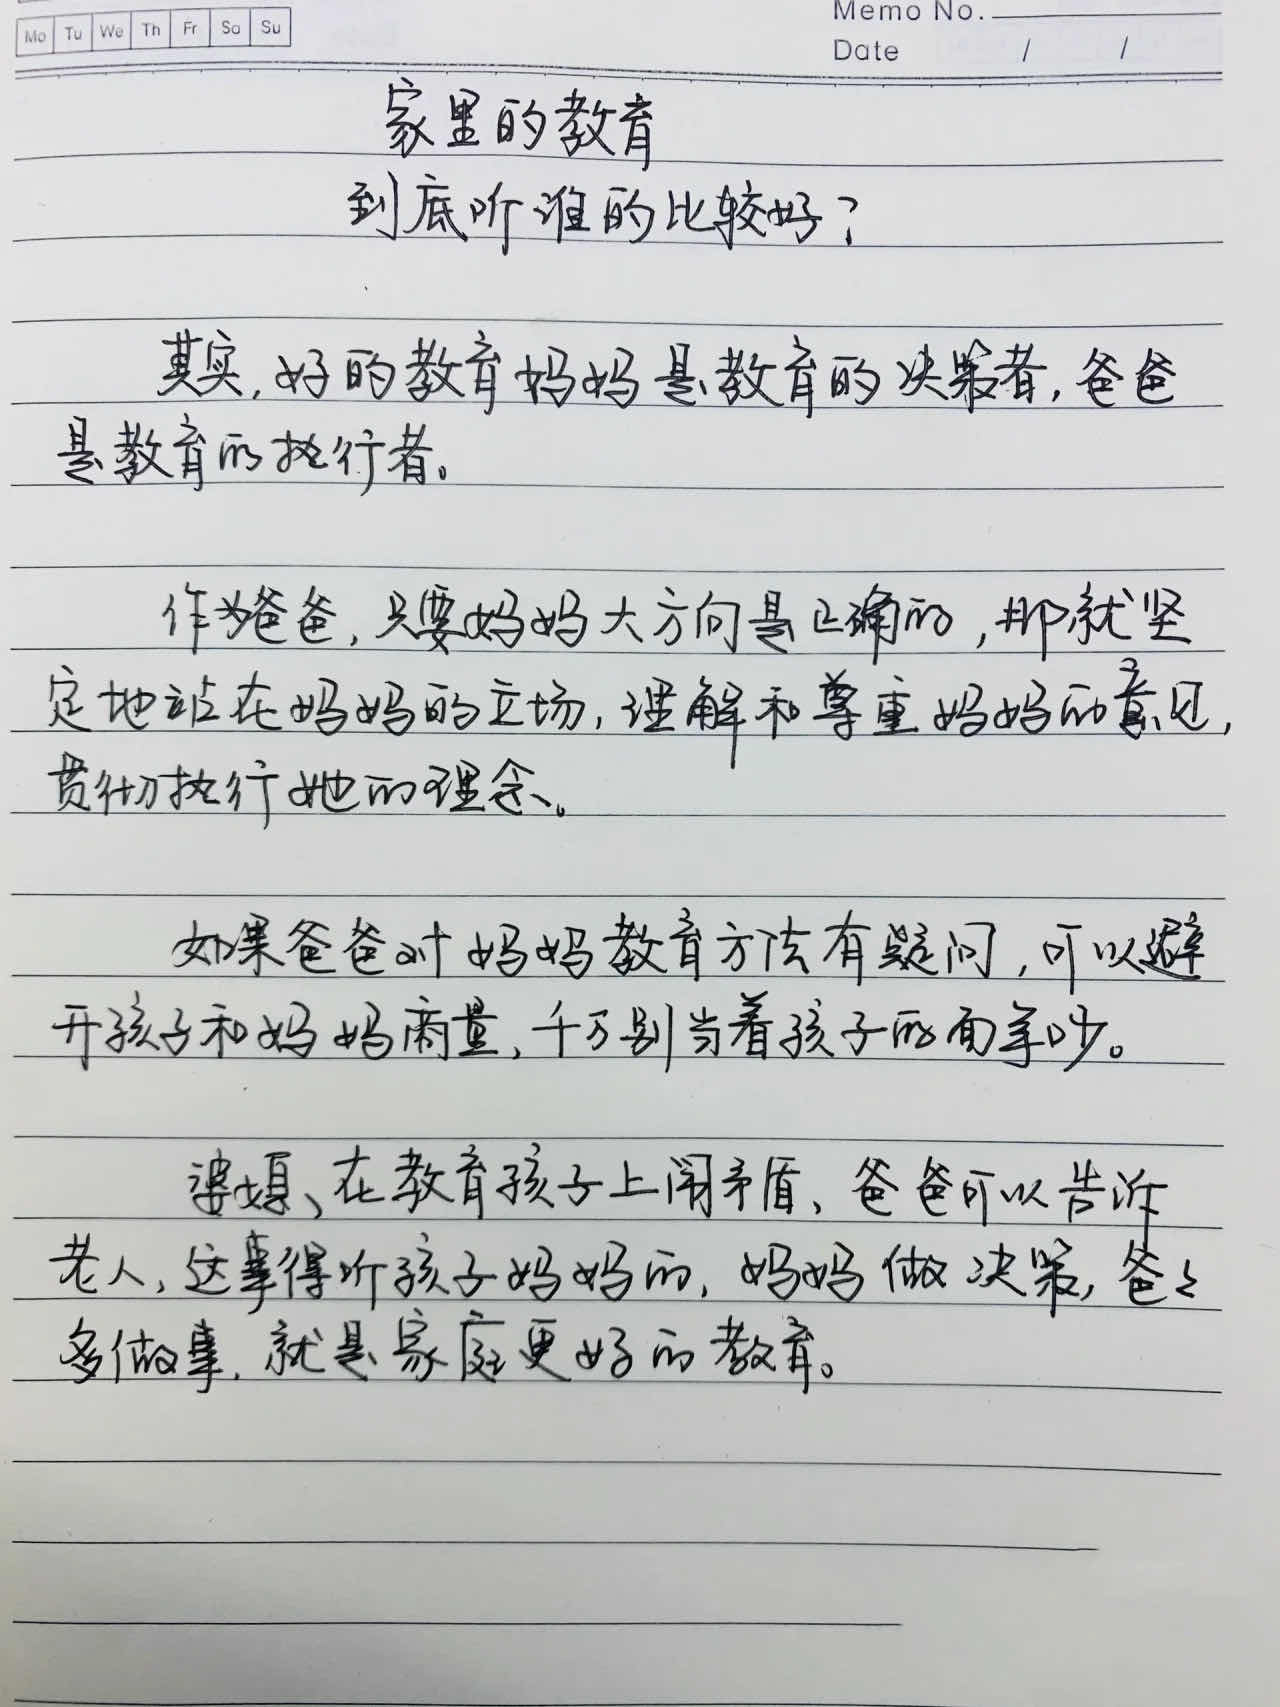 Mo Tu We Th Fr Sa Su
Memo No.
Date / /
家里的教育
到底听谁的比较好？
其实，好的教育妈妈是教育的决策者，爸爸
是教育的执行者。
作为爸爸，只要妈妈大方向是正确的，那就坚
定地站在妈妈的立场，理解和尊重妈妈的意见，
贯彻执行她的理念。
如果爸爸对妈妈教育方法有疑问，可以避
开孩子和妈妈商量，千万别当着孩子的面争吵。
婆媳、在教育孩子上闹矛盾、爸爸可以告诉
老人，这事得听孩子妈妈的，妈妈做决策，爸爸
多做事，就是家庭更好的教育。